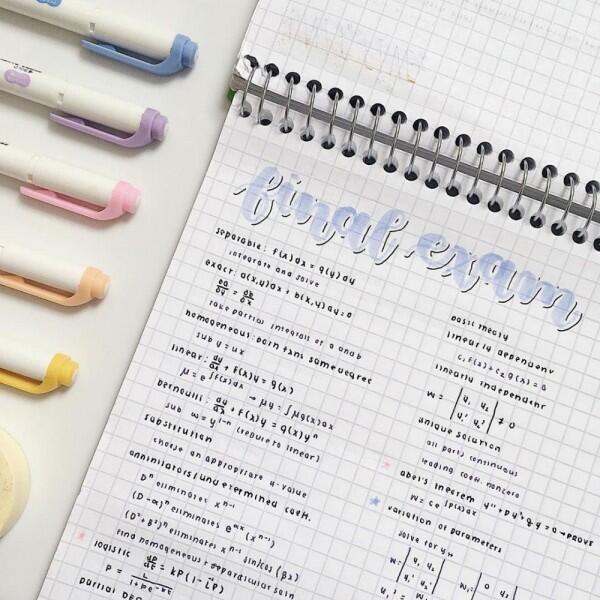 final exam
separable: f(x)dx = g(y)dy
integrate and solve
exact: a(x,y)dx + b(x,y)dy = 0
∂a/∂y = ∂b/∂x
take partial integrals of a and b
homogeneous: both fxns same degree
sub y = ux
linear: dy/dx + f(x)y = g(x)
μ = e^∫f(x)dx → μy = ∫μg(x)dx
bernoulli: dy/dx + f(x)y = g(x)y^n
sub w = y^1-n (reduce to linear)
substitution
choose an appropriate u-value
annihilators/undetermined coeff.
D^n eliminates x^n-1
(D-α)^n eliminates e^αx (x^n-1)
eliminates x^n-1 sin/cos (βx)
find homogeneous + particular soln
logistic dP/dt = kP(1-
P = L/
partial
basic theory
linearly dependent
c₁f(x) + c₂g(x) = 0
linearly independent
w = | y₁ y₂ |
| y₁' y₂' | ≠ 0
unique solution
all parts continuous
leading coeff. nonzero
abel's theorem y''+py'+qy=0 → prove
w = ce^
variation of parameters
solve for
w = | y₁ y₂ | w₁ = | 0 y₂ |
| y₁' y₂' |